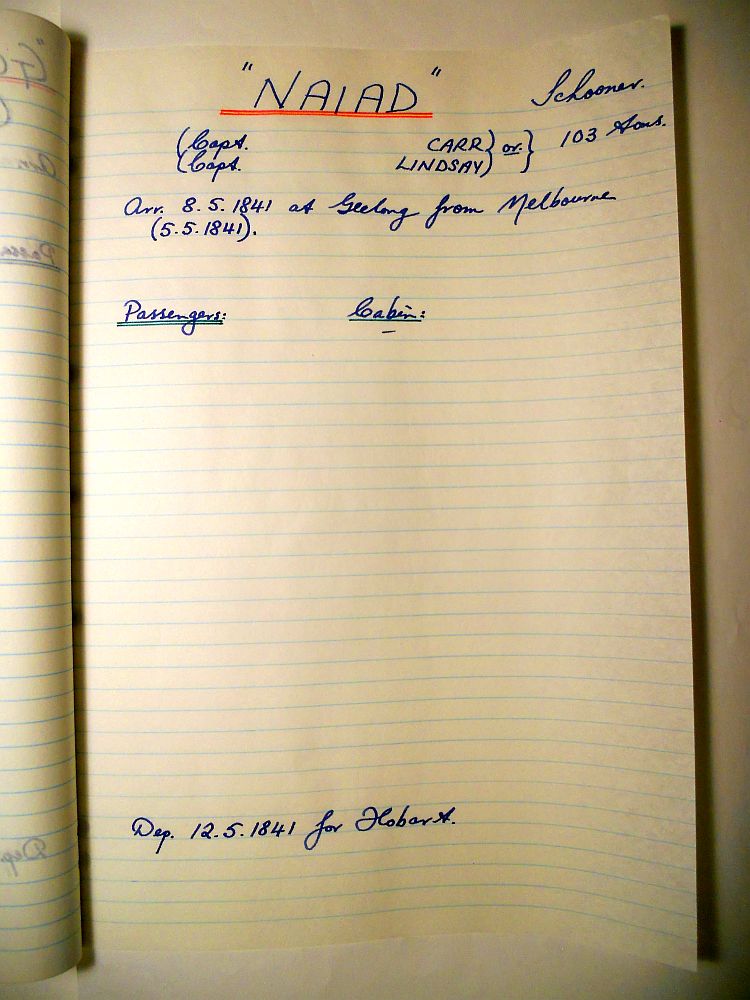 "NAIAD" Schooner.
(Capt. CARR) or } 103 Tons.
(Capt. LINDSAY)
Arr. 8.5.1841 at Geelong from Melbourne
(5.5.1841).
Passengers: Cabin:
—
Dep. 12.5.1841 for Hobart.